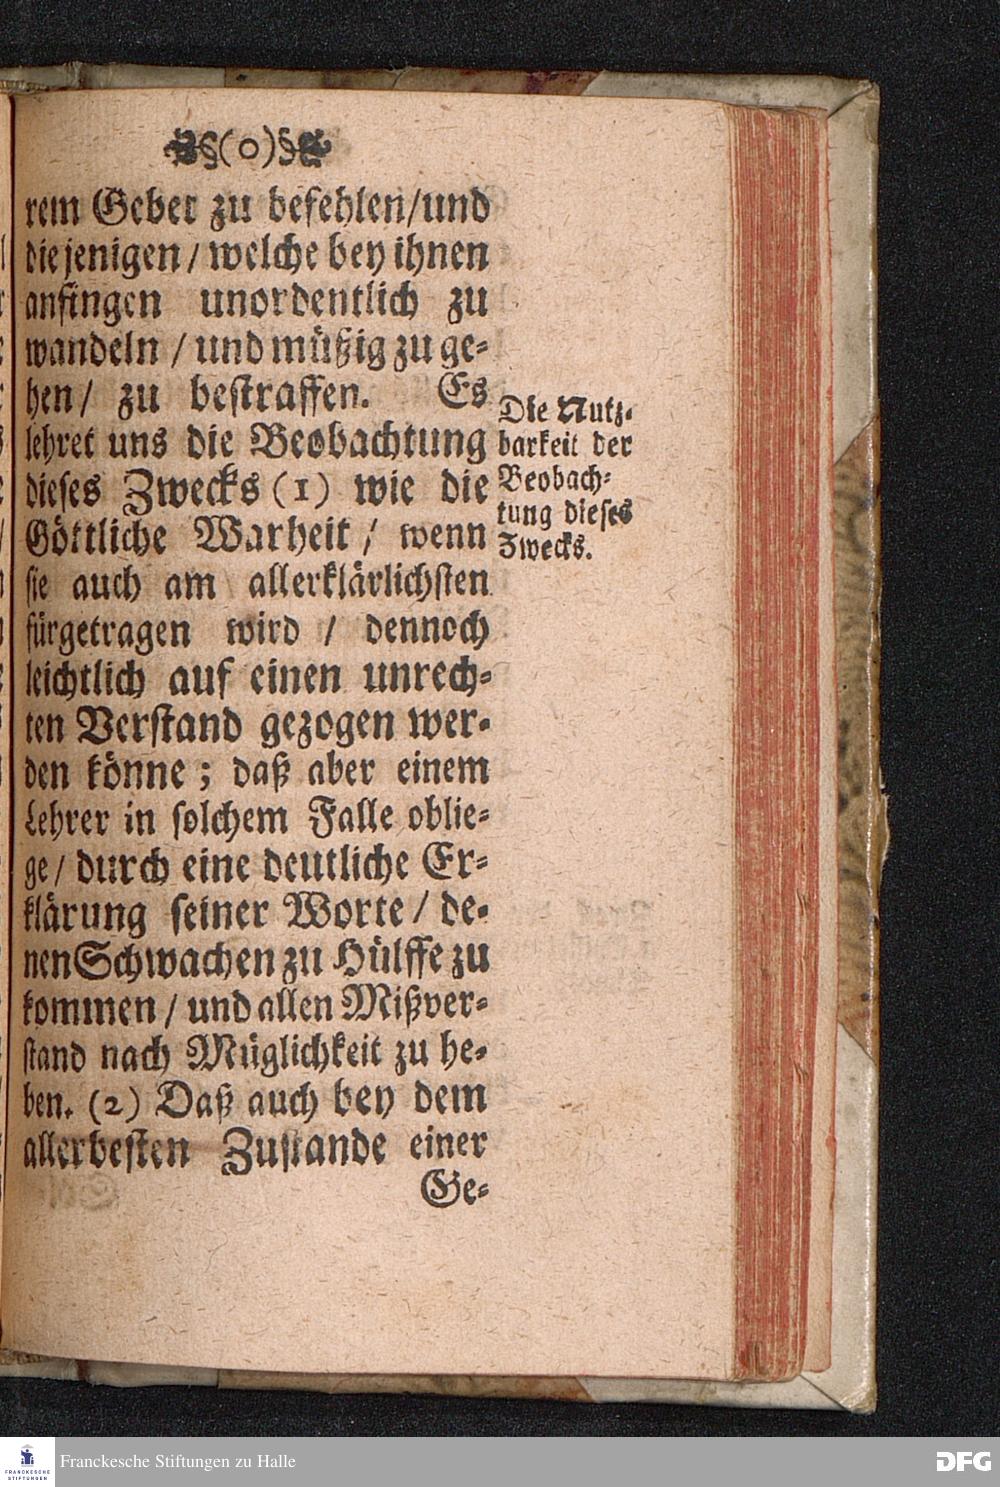 §(o)§
rem Gebet zu befehlen/und
die jenigen / welche bey ihnen
anfingen unordentlich zu
wandeln / und müßig zu ge-
hen / zu bestraffen. Es
lehret uns die Beobachtung
dieses Zwecks (1) wie die
Göttliche Warheit / wenn
sie auch am allerklärlichsten
fürgetragen wird / dennoch
leichtlich auf einen unrech-
ten Verstand gezogen wer-
den könne ; daß aber einem
Lehrer in solchem Falle oblie-
ge / durch eine deutliche Er-
klärung seiner Worte / de-
nen Schwachen zu Hülffe zu
kommen / und allen Mißver-
stand nach Müglichkeit zu he-
ben. (2) Daß auch bey dem
allerbesten Zustande einer
Ge-
Die Nutz-
barkeit der
Beobach-
tung dieses
Zwecks.
FRANCKESCHE
STIFTUNGEN
Franckesche Stiftungen zu Halle
DFG